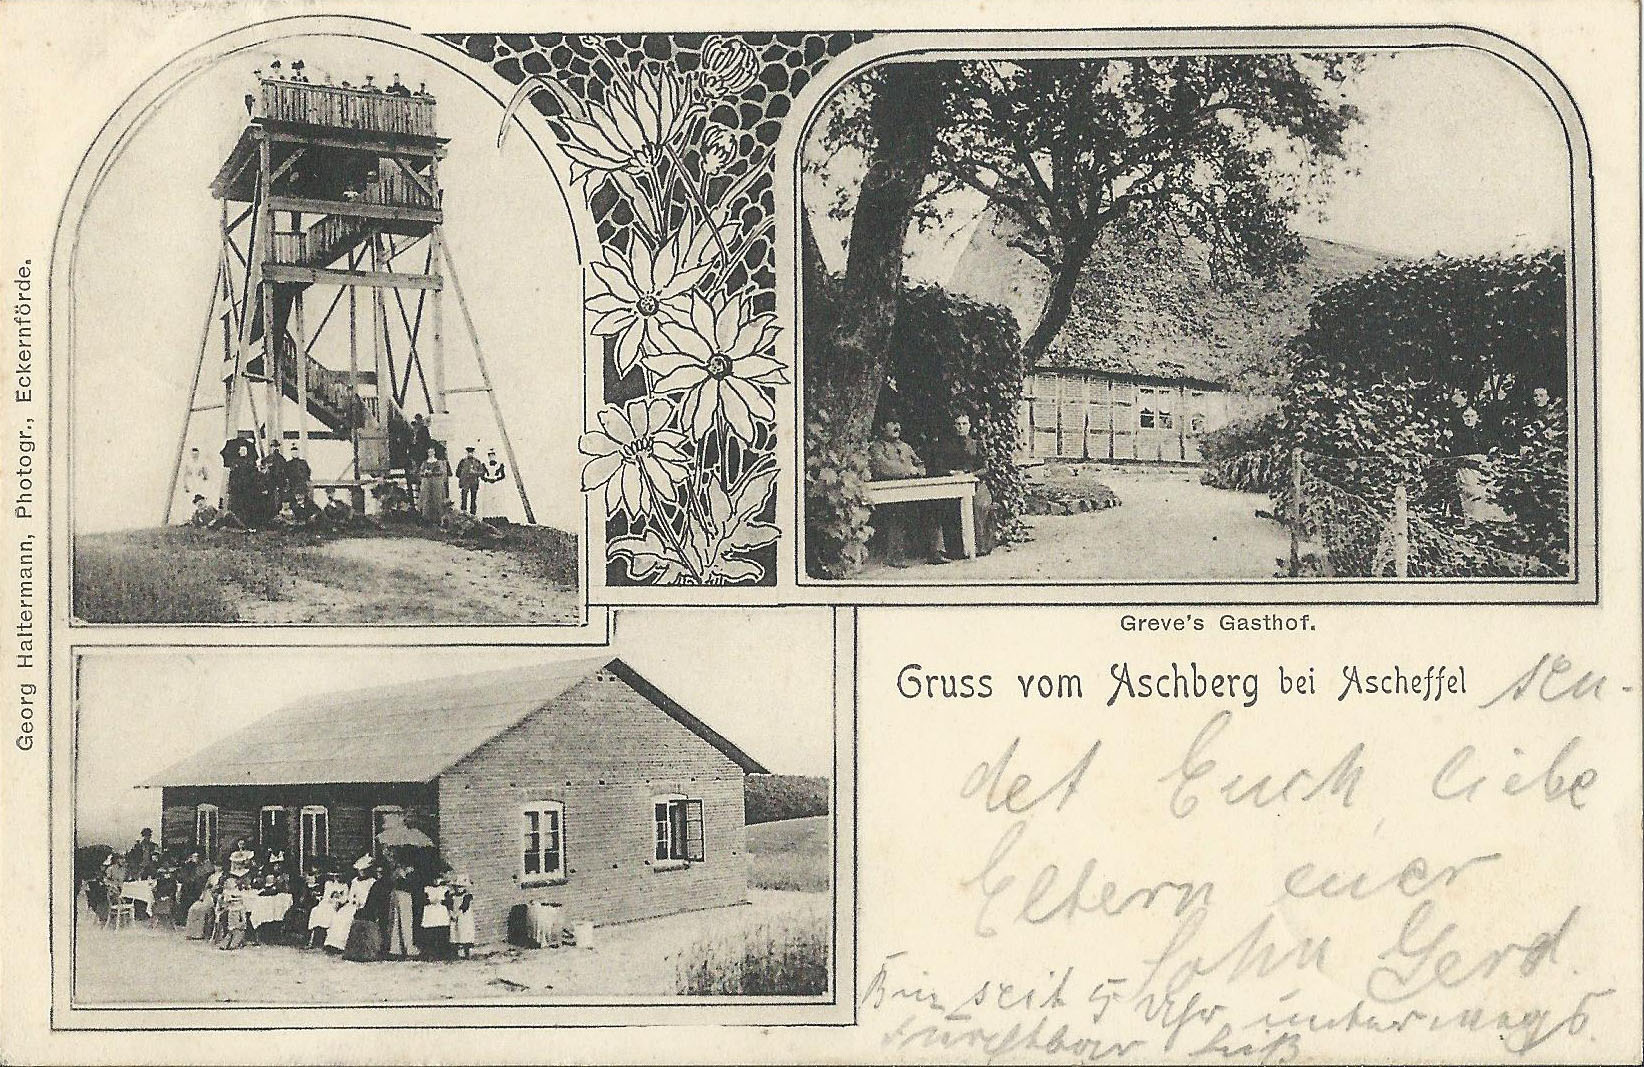 Georg Haltermann, Photogr., Eckernförde.
Greve's Gasthof.
Gruss vom Aschberg bei Ascheffel sen-
det Euch, liebe
Eltern euer
Sohn Gerd.
Bin seit 5 Uhr unterwegs.
Furchtbar heiß